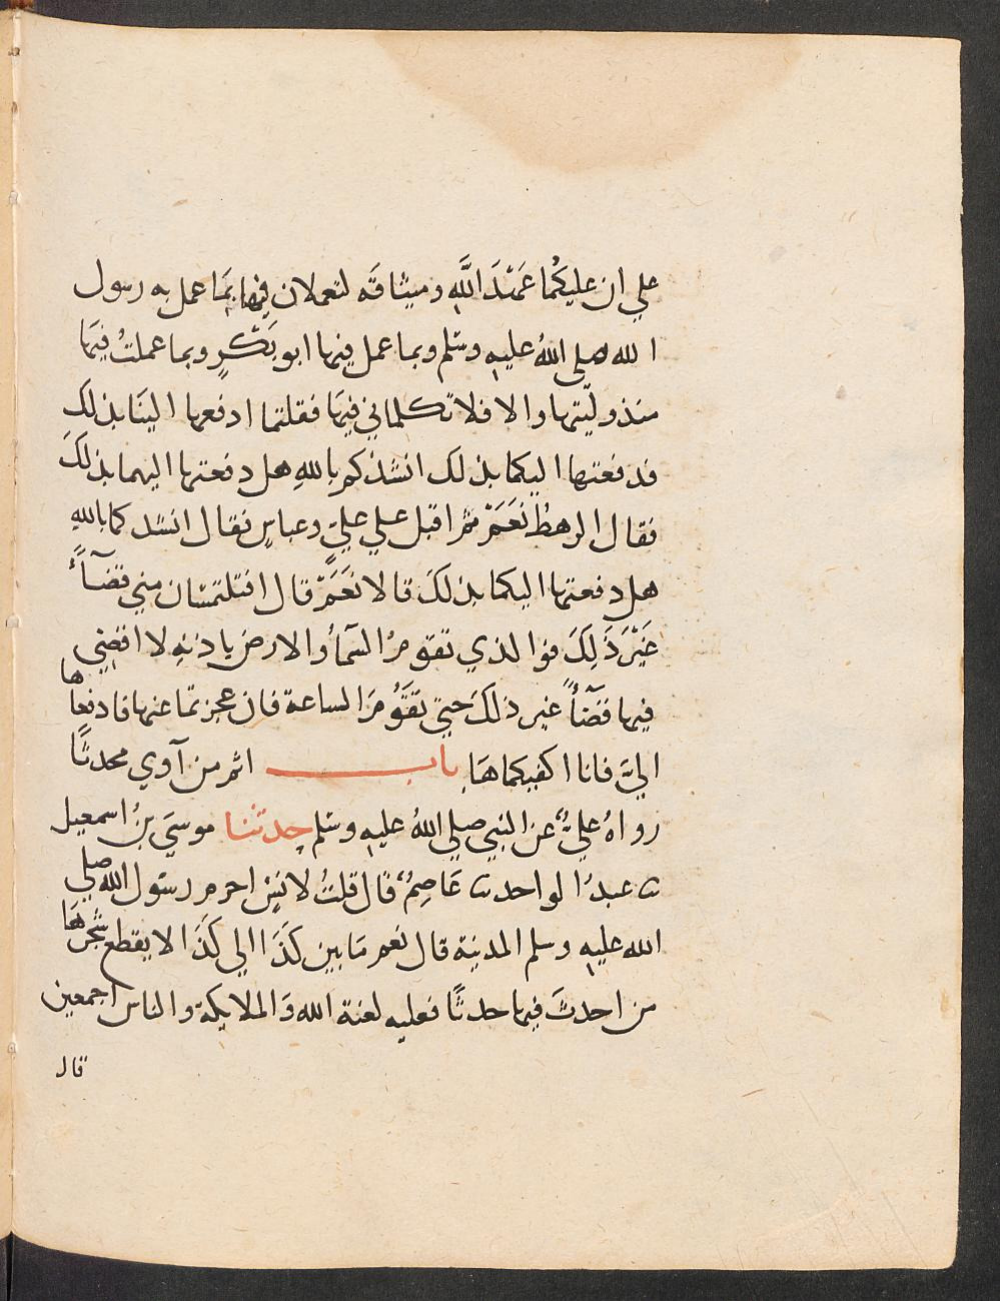 علي ان عليكُما عَهْدَ اللَّهِ وميثاقَه لتعملان فيها بمَا عمل به رسول
الله صلي اللهُ عليه وسَلم وبما عمل فيها ابو بَكْرٍ وبما عملتُ فيهَا
منذ وليّتها والا فلا تكلماني فيهَا فقلتما ادفعها الينَا بذلك
فدفعتها اليكما بذلك انشدكم بِاللهِ هل دفعتها اليهما بذلكَ
فقال الرهطُ نعَمَْ ثم اقبل علي عليٍّ وعباسٍ فقال انشدكما بِاللهِ
هل دفعتها اليكما بذلكَ قالا نَعَمَْ قال افتلتمسَان مني قضَآءً
غَيْرَ ذَلِكَ فوا لذي تقوم السَمآُ والارض باذنهِ لا اقضي
فيها قضَآءً غير ذلكَ حتي تقَُومَ الساعة فان عجزتما عنها فادفعاها
اليَّ فانا اكفيكماهَا باب اثم من آوي محدثًا
رواهُ عليٌّ عن النبي صلي اللهُ عليه وسَلم حدثنا موسَي بنُ اسمعيل
ثنا عبدُ الواحد ثنا عَاصِمٌ قال قلتُ لانسٍ احرم رسَول الله صلي
الله عليه وسلم المدينة قال نعم مَا بين كذَا الي كذَا لا يقطع شَجرهَا
من احدثَ فيها حدثًا فعليه لعنة الله وَالملايكة والناس اجمعين
قال